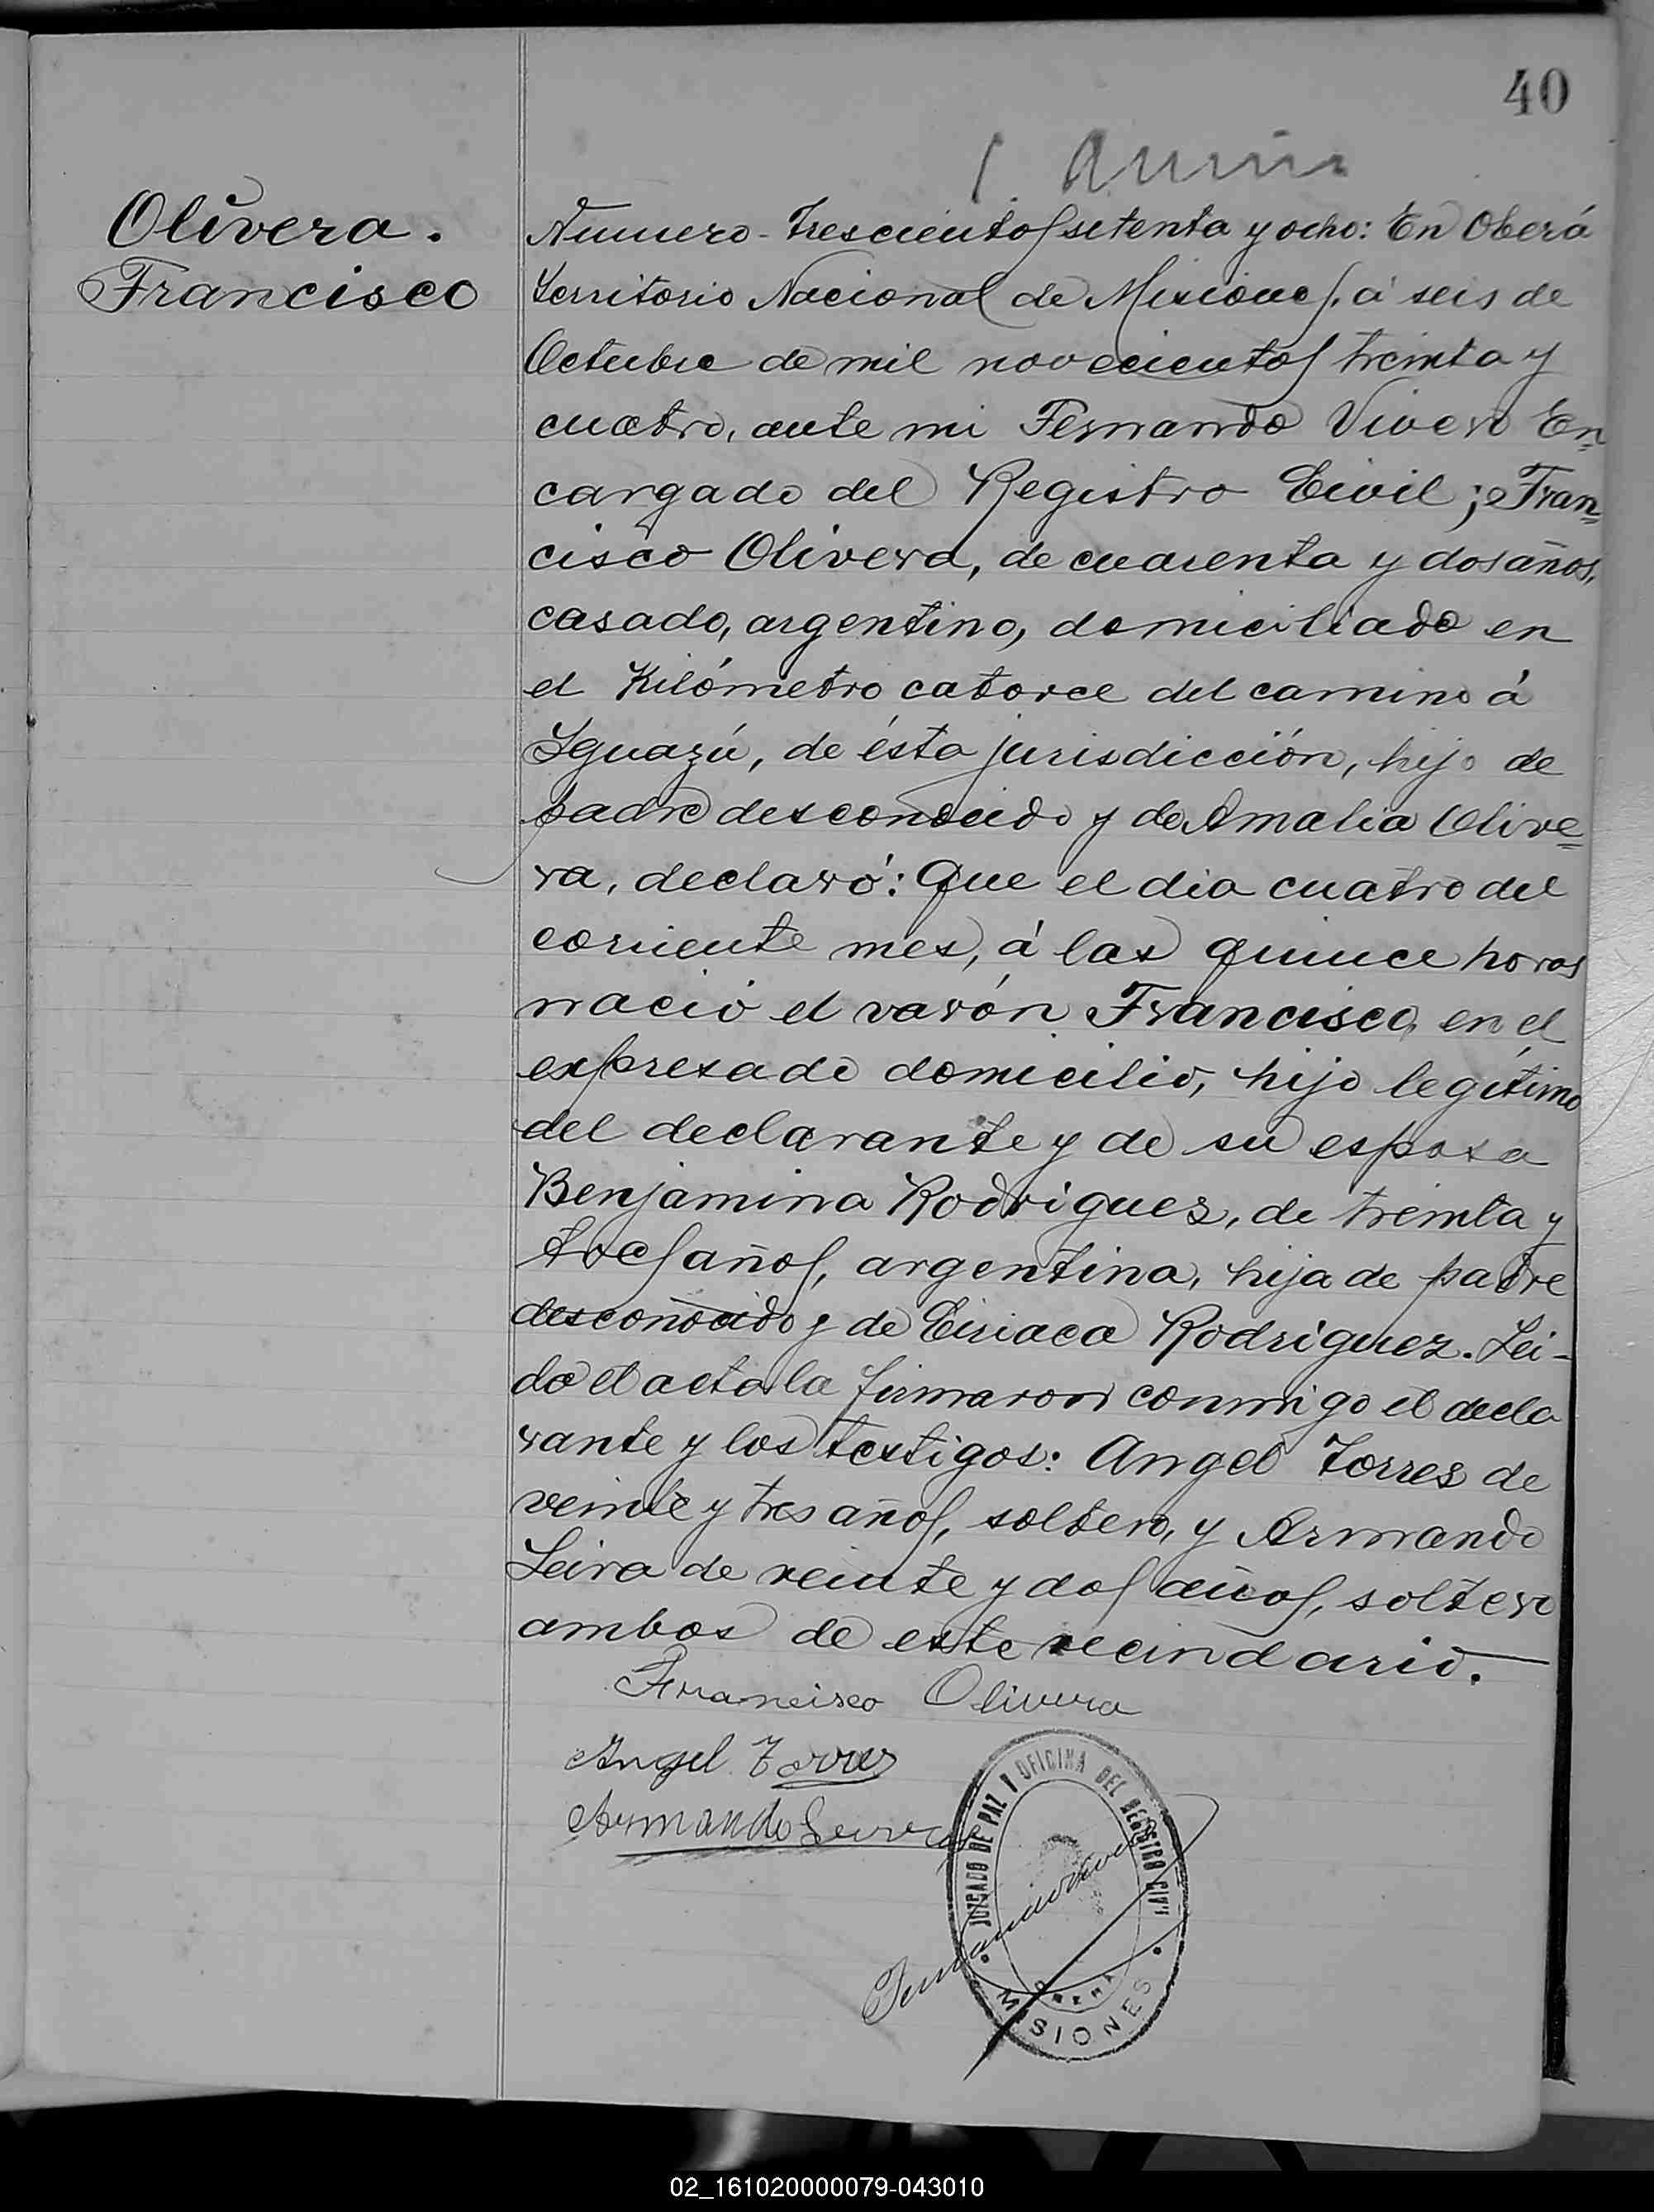 40
Olivera.
Francisco
Numero - Trescientos setenta y ocho: En Oberá
Territorio Nacional de Misiones, á seis de
Octubre de mil novecientos treinta y
cuatro, ante mi Fernando Vivero En=
cargado del Registro Civil; Fran=
cisco Olivera, de cuarenta y dos años,
casado, argentino, domiciliado en
el Kilómetro catorce del camino á
Yguazú, de ésta jurisdicción, hijo de
padre desconocido y de Amalia Olive=
ra, declaró: Que el dia cuatro del
corriente mes, á las quince horas
nació el varón Francisco, en el
expresado domicilio, hijo legítimo
del declarante y de su esposa
Benjamina Rodriguez, de treinta y
tres años, argentina, hija de padre
desconocido y de Ciriaca Rodriguez. Lei-
da el acta la firmaron conmigo el decla
rante y los testigos: Angel Torres de
veinte y tres años, soltero, y Armando
Leiva de veinte y dos años, soltero
ambos de este vecindario.
Francisco Olivera
Angel Torres
Armando Leiva
JUZGADO DE PAZ Y OFICINA DEL REGISTRO CIVIL
OBERA
MISIONES
02_161020000079-043010